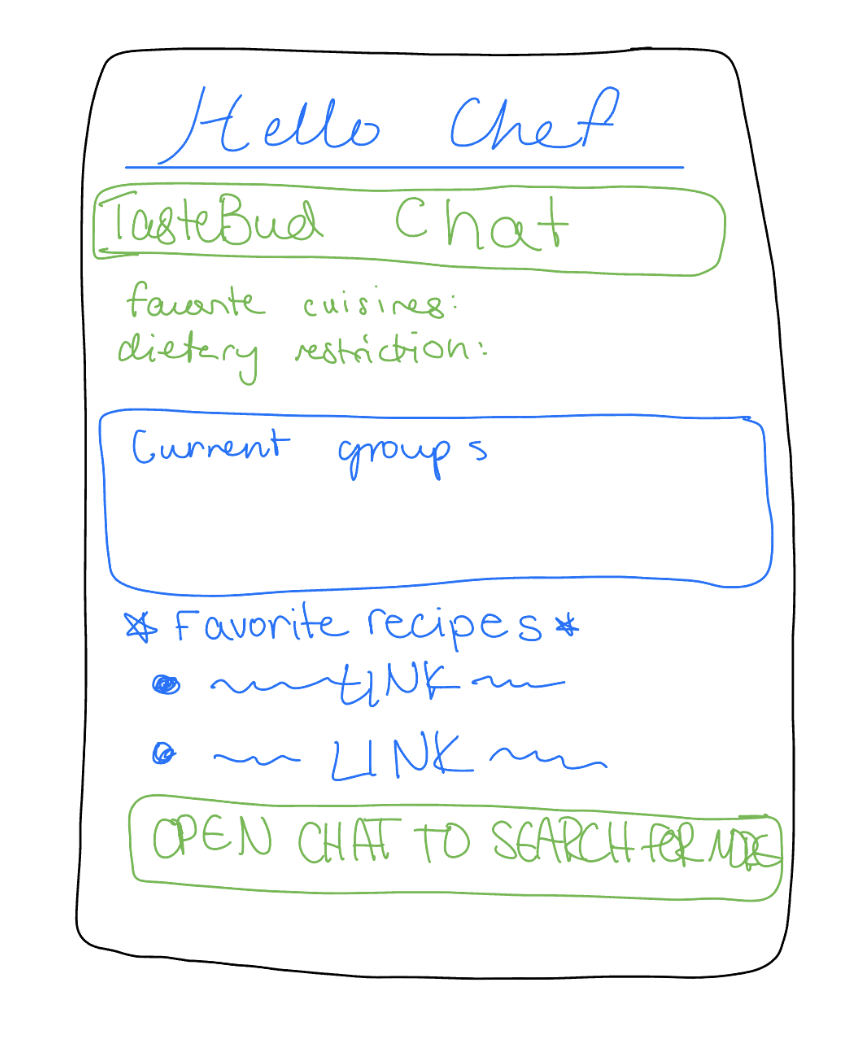 Hello Chef
TasteBud Chat
favorite cuisines:
dietary restriction:
Current groups
Favorite recipes
LINK
LINK
OPEN CHAT TO SEARCH FOR MORE